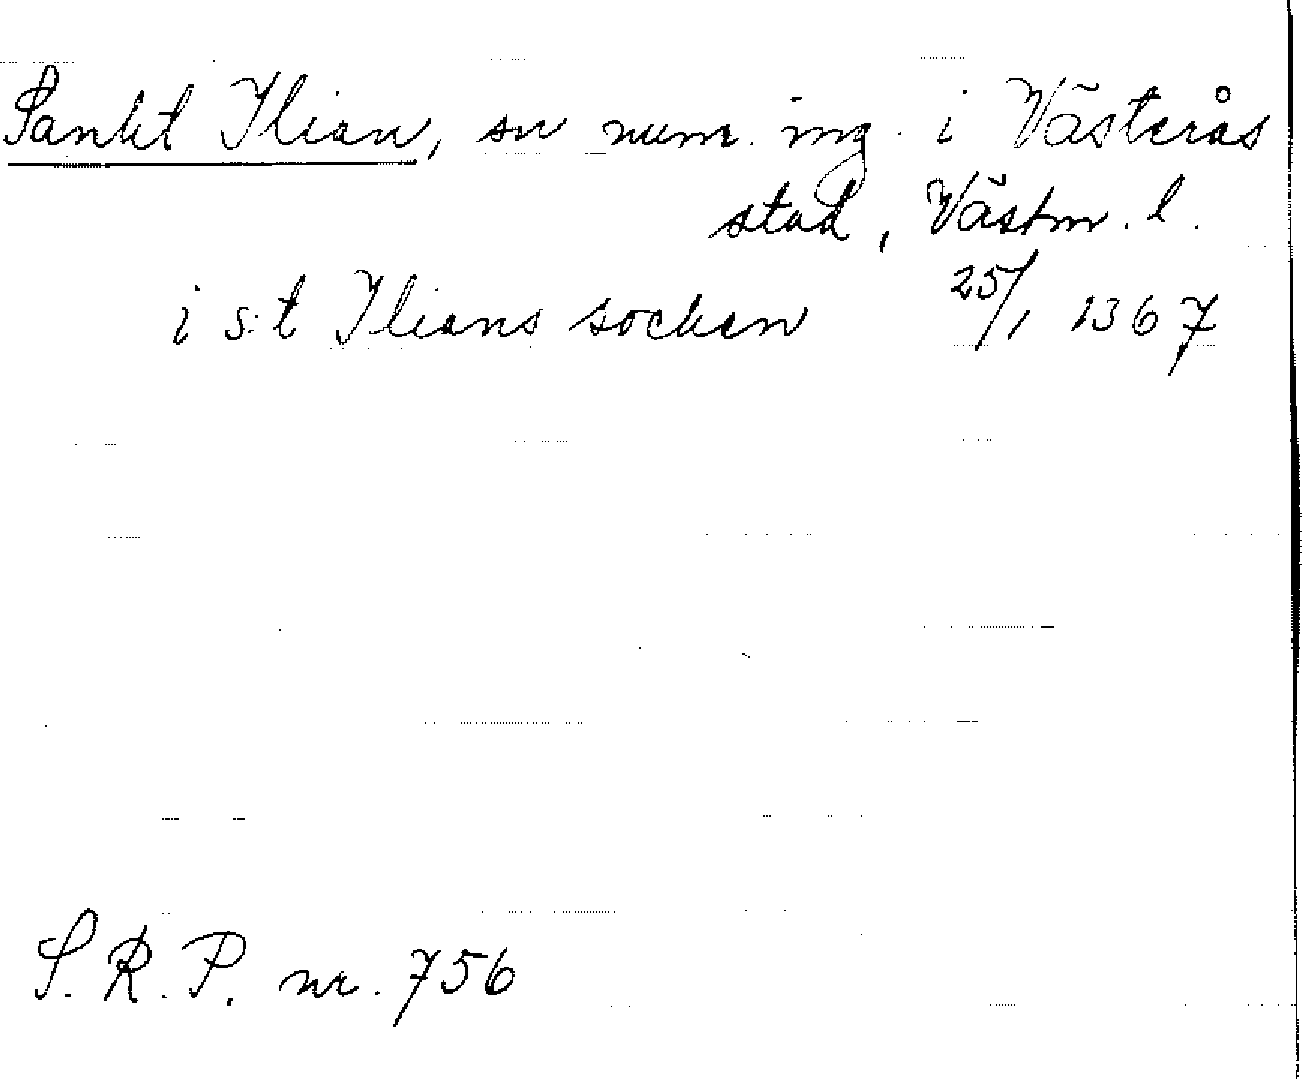 Sankt Ilian, sn num. ing. i Västerås
stad, Västm. l.
i s:t Ilians socken 25/1 1367
S.R.P. nr. 756